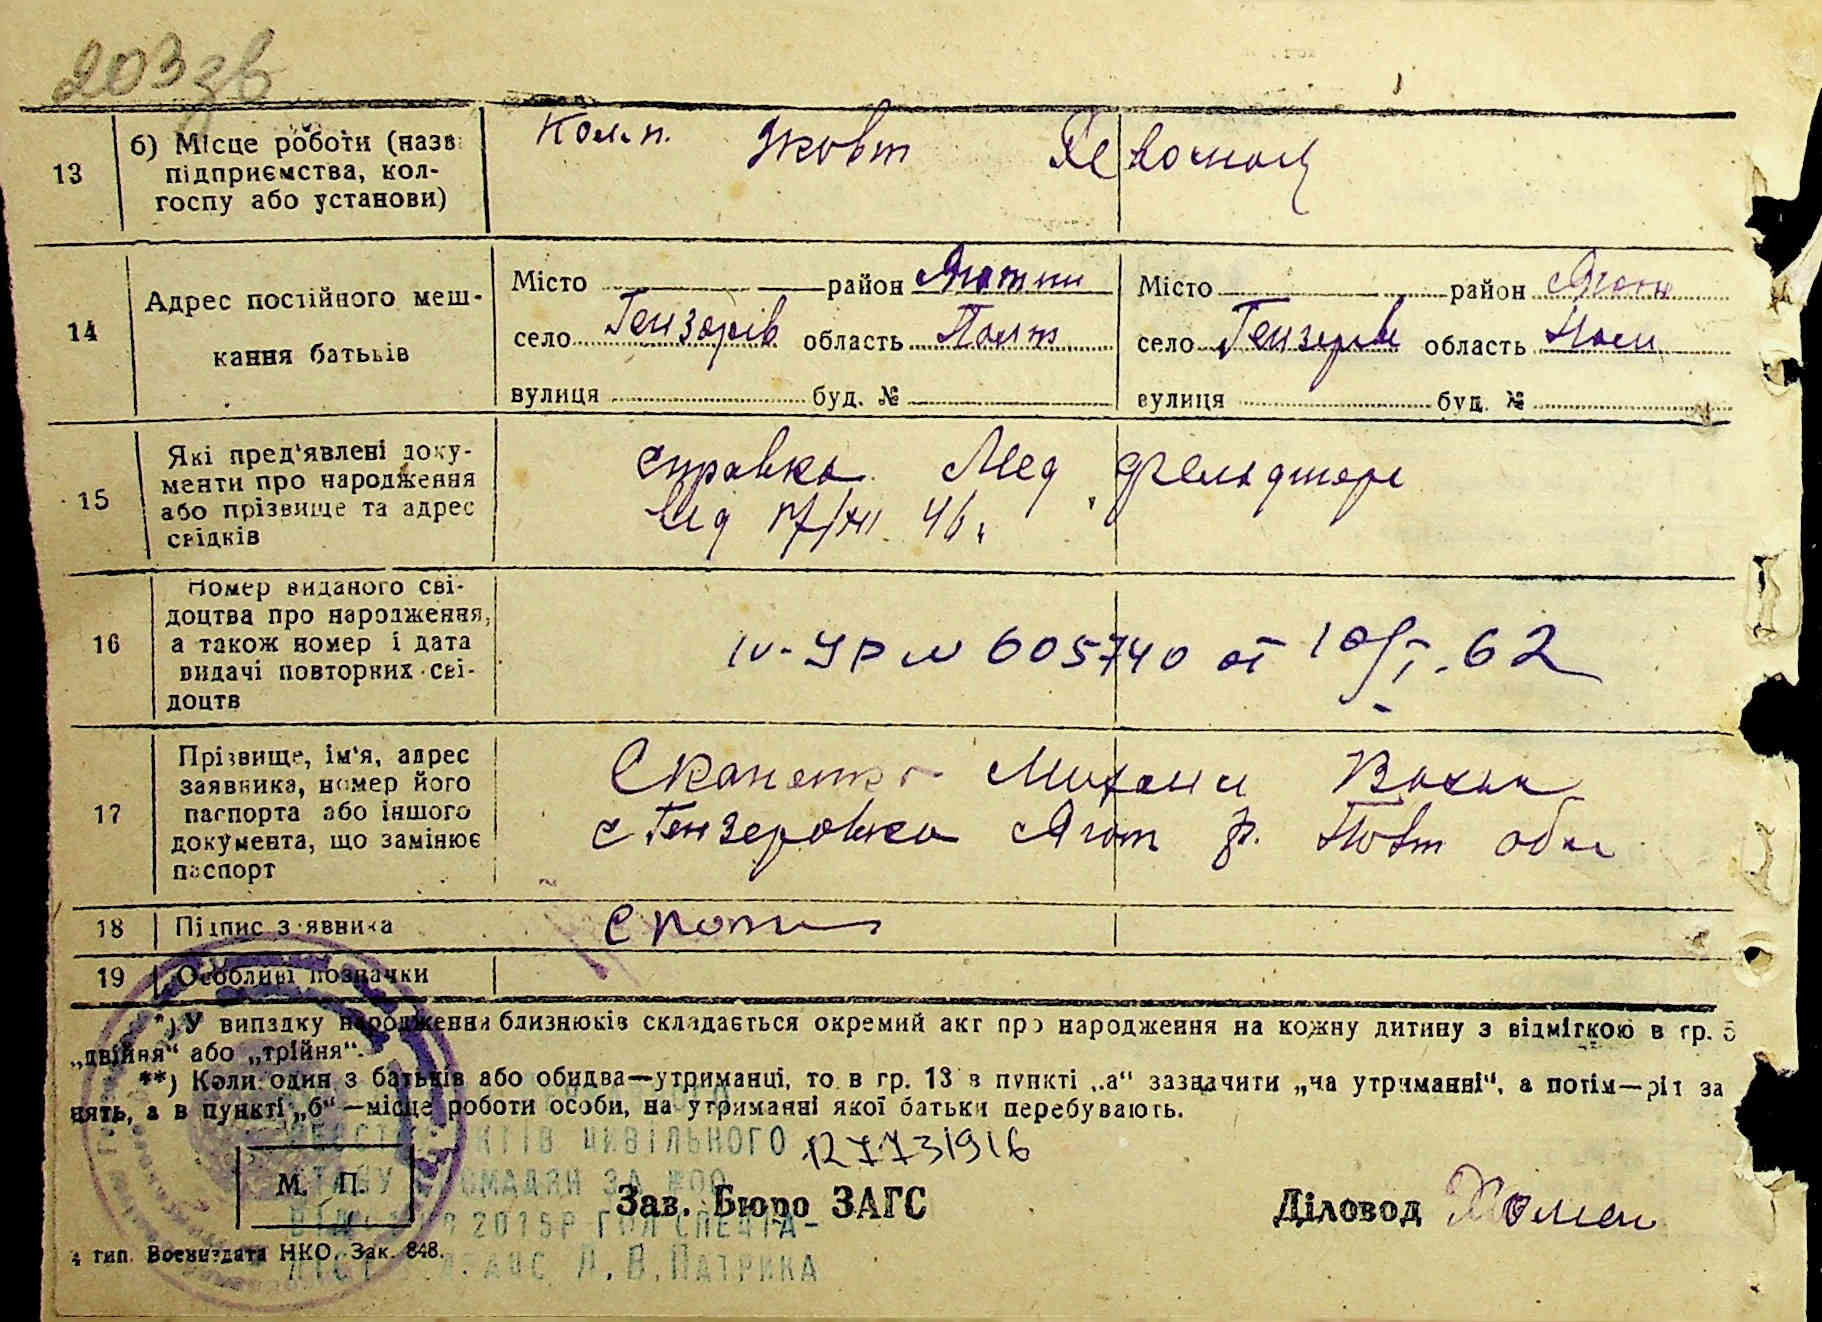 203зв
13 б) Місце роботи (назв
підприємства, кол-
госпу або установи)
Жовт
14 Адрес постійного меш-
кання батьків
Місто район Яготин
село Гензерів область Полт
вулиця буд. №
Місто район Ягот
село Гензерів область Пол
вулиця буд. №
15 Які пред'явлені доку-
менти про народження
або прізвище та адрес
свідків
справка Мед фельдшера
від 17/XII 46
16 Номер виданого сві-
доцтва про народження,
а також номер і дата
видачі повторних сві-
доцтв
IV-УР № 605740 от 10/I.62
17 Прізвище, ім'я, адрес
заявника, номер його
паспорта або іншого
документа, що замінює
паспорт
с Гензеровка Ягот р. Полт обл
18 Підпис заявника
19 Особливі позначки
*) У випадку народження близнюків складається окремий акт про народження на кожну дитину з відміткою в гр. 5
„двійня“ або „трійня“.
**) Коли один з батьків або обидва—утриманці, то в гр. 13 в пункті „а“ зазначити „на утриманні“, а потім—рід за
нять, а в пункті „б“—місце роботи особи, на утриманні якої батьки перебувають.
ЦИВІЛЬНОГО 127731916
М. П.
Зав. Бюро ЗАГС
Діловод
2015Р
4 тип. Воениздата НКО. Зак. 848.
Л.В.ПАТРИКА